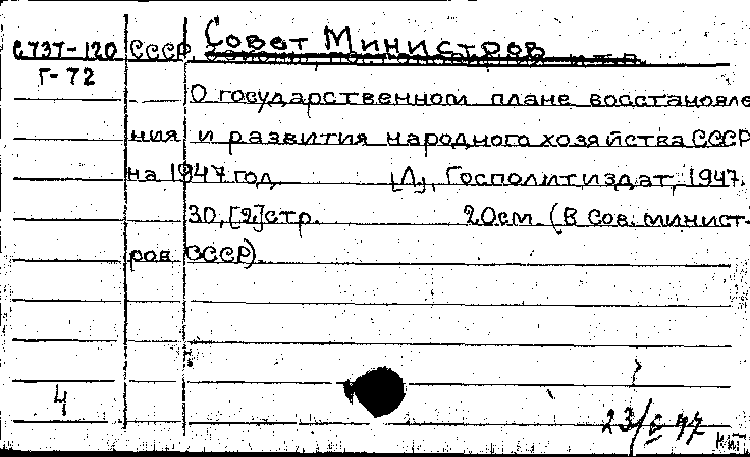 С737-120 СССР Совет Министров
Г-72
О государственном плане восстановле
ния и развития народного хозяйства СССР
на 1947 год [Л], Госполитиздат, 1947.
30, [2] стр. 20см. (В Сов. минист-
ров СССР).
4
23/